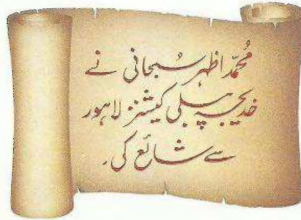 محمّد اظہر سُبحانی نے
خدیجہ پبلی کیشنز لاہور
سے شائع کی۔